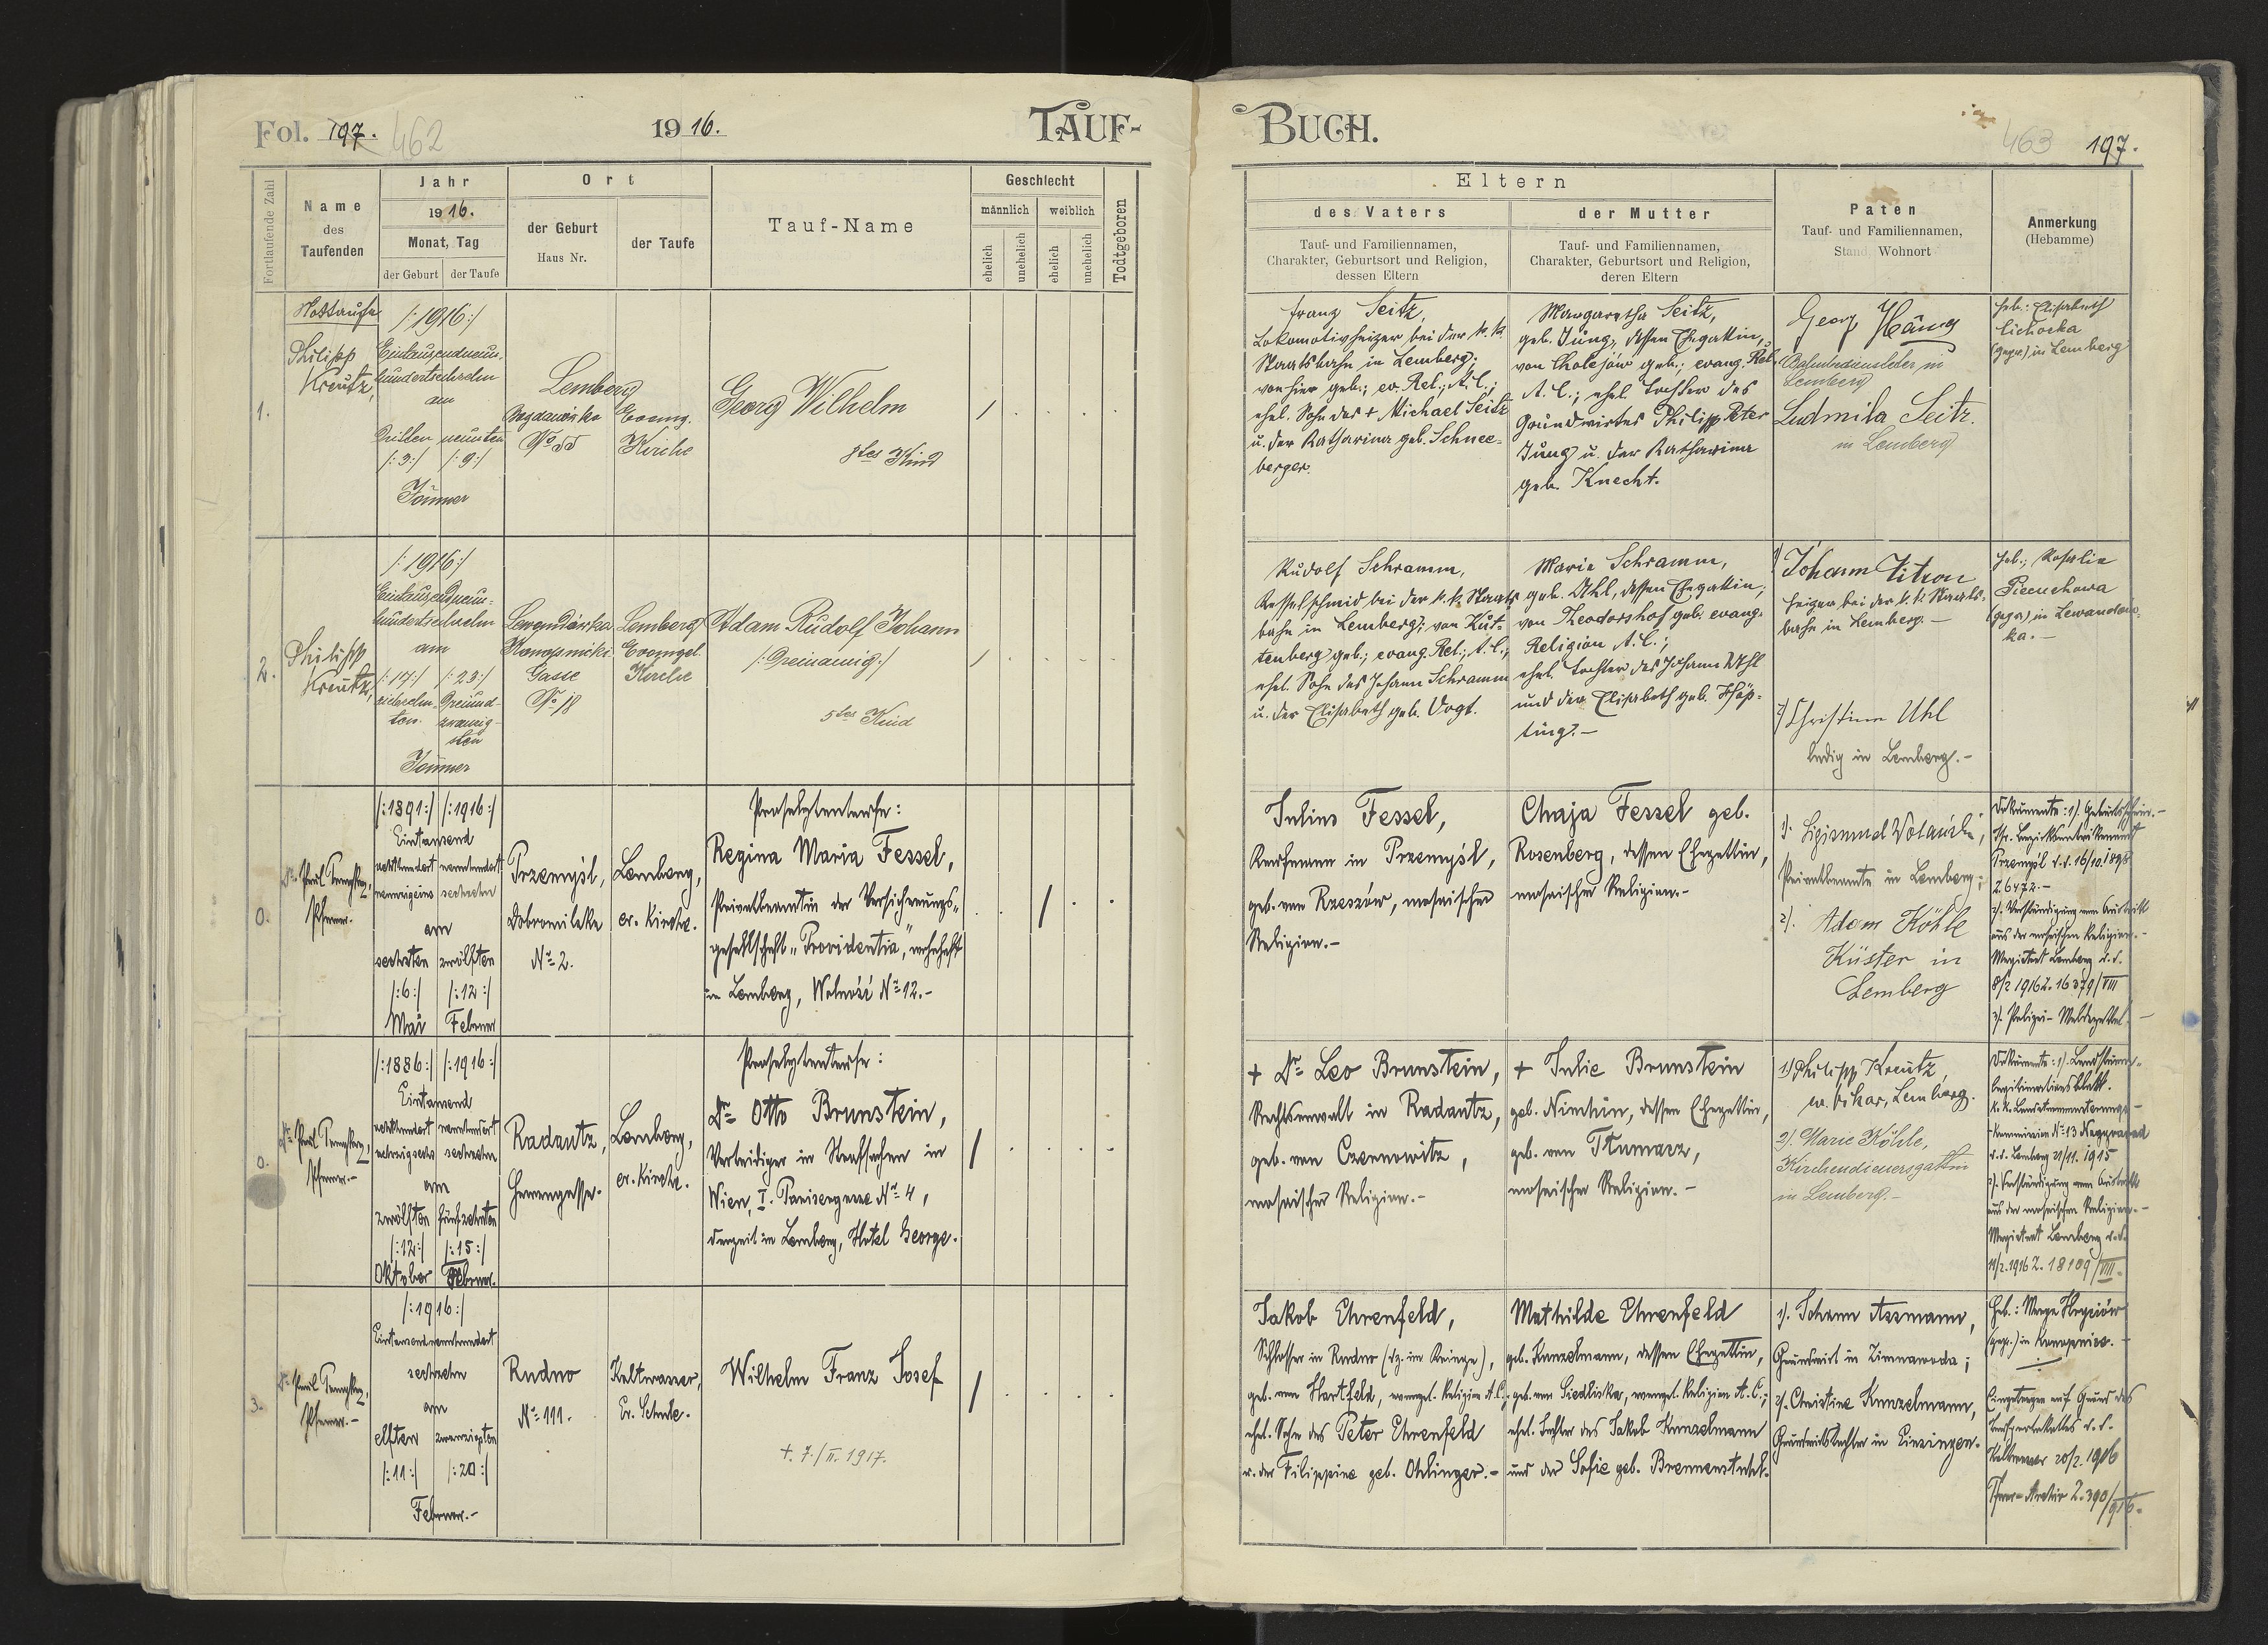 Fol. 197. 462
1916.
TAUF-
Fortlaufende Zahl
Name
des
Taufenden
Jahr
1916.
Monat, Tag
der Geburt
der Taufe
Ort
der Geburt
Haus Nr.
der Taufe
Tauf-Name
Geschlecht
männlich
weiblich
ehelich
unehelich
ehelich
unehelich
Todtgeboren
1.
Nottaufe
Philipp
Kreutz,
/:1916:/
Eintausendneun-
hundertsechzehn
am
Dritten neunten
/:3:/ /:9:/
Jänner
Lemberg
Bogdanówka
Evang.
Kirche
Georg Wilhelm
8tes Kind
2.
Philipp
Kreutz,
/:1916:/
Eintausendneun-
hundertsechzehn
am
/:17:/ /:23:/
siebzehn- Dreiund-
ten zwanzig-
sten
Jänner
Lewandówka
Konopnicki-
Gasse
No 18
Lemberg
Evangel.
Kirche
Adam Rudolf Johann
/:Dreinamig:/
5tes Kind
0.
Dr. Paul
Pfarrer.
/:1891:/ /:1916:/
Eintausend
achthundert neunhundert
neunzigeins sechzehn
am
sechsten zwölften
/:6:/ /:12:/
Mai Februar
Przemyśl,
Dobromilska
No 2.
Lemberg,
ev. Kirche.
Proselytentaufe:
Regina Maria Fessel,
Privatbeamtin der Versicherungs-
gesellschaft "Providentia", wohnhaft
in Lemberg, Wolność No 12.-
0.
Dr. Paul
Pfarrer.-
/:1886:/ /:1916:/
Eintausend
achthundert neunhundert
achtzigsechs sechzehn
am
zwölften fünfzehnten
/:12:/ /:15:/
Oktober Februar.
Radautz,
Herrengasse.
Lemberg,
ev. Kirche.
Proselytentaufe:
Dr. Otto Brunstein,
Verteidiger in Strafsachen in
Wien, I. Tanisergasse No 4,
derzeit in Lemberg, Hotel George.
3.
Dr. Paul
Pfarrer.-
/:1916:/
Eintausendneunhundert
sechzehn
am
elften zwanzigsten
/:11:/ /:20:/
Februar.-
Rudno
No 111.
Kaltwasser,
Ev. Schule.
Wilhelm Franz Josef
+. 7./II. 1917.
BUCH.
463 197.
Eltern
des Vaters
Tauf- und Familiennamen,
Charakter, Geburtsort und Religion,
dessen Eltern
der Mutter
Tauf- und Familiennamen,
Charakter, Geburtsort und Religion,
deren Eltern
Paten
Tauf- und Familiennamen,
Stand, Wohnort
Anmerkung
(Hebamme)
Franz Seitz,
Lokomotivheizer bei der k. k.
Staatsbahn in Lemberg;
von hier geb.; ev. Rel.; A.C.;
ehel. Sohn des + Michael Seitz
u. der Katharina geb. Schnee-
berger.
Margaretha Seitz,
geb. Jung, dessen Ehegattin,
von Cholojów geb.; evang. Rel.
A. C.; ehel. Tochter des
Grundwirtes Philipp Peter
Jung u. der Katharina
geb. Knecht.
Georg
in
Lemberg
Ludmila Seitz.
in Lemberg
Heb.: Elisabeth
Cichocka
(gepr.) in Lemberg
Rudolf Schramm,
Kesselschmid bei der k. k. Staats-
bahn in Lemberg; von Kut-
tenberg geb.; evang. Rel.; A. C.;
ehel. Sohn des Johann Schramm
u. der Elisabeth geb. Vogt.
Maria Schramm,
geb. Uhl, dessen Ehegattin;
von Theodorshof geb. evang.
Religion A. C.;
ehel. Tochter des Johann Uhl
und der Elisabeth geb.
1) Johann Zitron
Heizer bei der k. k. Staats-
bahn in Lemberg.-
2) Christine Uhl
ledig in Lemberg.-
Heb.: Rosalie
(gepr.) in Lewandow-
ka.-
Julius Fessel,
Kaufmann in Przemyśl,
geb. von Rzeszów, mosaischer
Religion.-
Chaja Fessel geb.
Rosenberg, dessen Ehegattin,
mosaischer Religion.-
1). Sigismund
Privatbeamte in Lemberg;
2). Adam Köhle
Küster in
Lemberg
Dokumente: 1). Geburtsschein.-
Przemyśl d.d. 16/10. 1898
Z. 6472.-
2). Verständigung vom Austritt
aus der mosaischen Religion.-
Magistrat Lemberg d. d.
8/2 1916 Z. 16379/VIII
3). Polizei-Meldezettel.-
+ Dr. Leo Brunstein,
Rechtsanwalt in Radautz,
geb. von Czernowitz,
mosaischer Religion.-
+ Julie Brunstein
geb. Nimhin, dessen Ehegattin,
geb. von Tłumacz,
mosaischer Religion.-
1) Philipp Kreutz,
ev. Vikar, Lemberg.
2). Marie Köhle,
Kirchendienersgattin
in Lemberg.-
Dokumente: 1). Landsturm-
legitimationsblatt.
k. k. Landsturmmusterungs-
Kommission No 13 Nagyvarad
d.d. Lemberg 21/11. 1915
2). Verständigung vom Austritt
aus der mosaischen Religion.-
Magistrat Lemberg d.d.
11/2. 1916 Z. 18109/VIII.
Jakob Ehrenfeld,
Schlosser in Rudno (dz. im Kriege),
geb. von Hartfeld, evangel. Religion A.C.,
ehel. Sohn des Peter Ehrenfeld
u. der Filippine geb. Ohlinger.-
Mathilde Ehrenfeld
geb. Kunzelmann, dessen Ehegattin,
geb. von Siedliska, evangel. Religion A. C.;
ehel. Tochter des Jakob Kunzelmann
und der Sofie geb. Brennenstuhl.
1). Johann Assmann,
Grundwirt in Zimnawoda;
2). Christine Kunzelmann,
Grundwirtstochter in Einsingen.
Heb.:
(gepr.) in
Eingetragen auf Grund des
Taufprotokolles d. d.
Kaltwasser 20/2. 1916
Pfarr-Archiv Z. 390/916.-